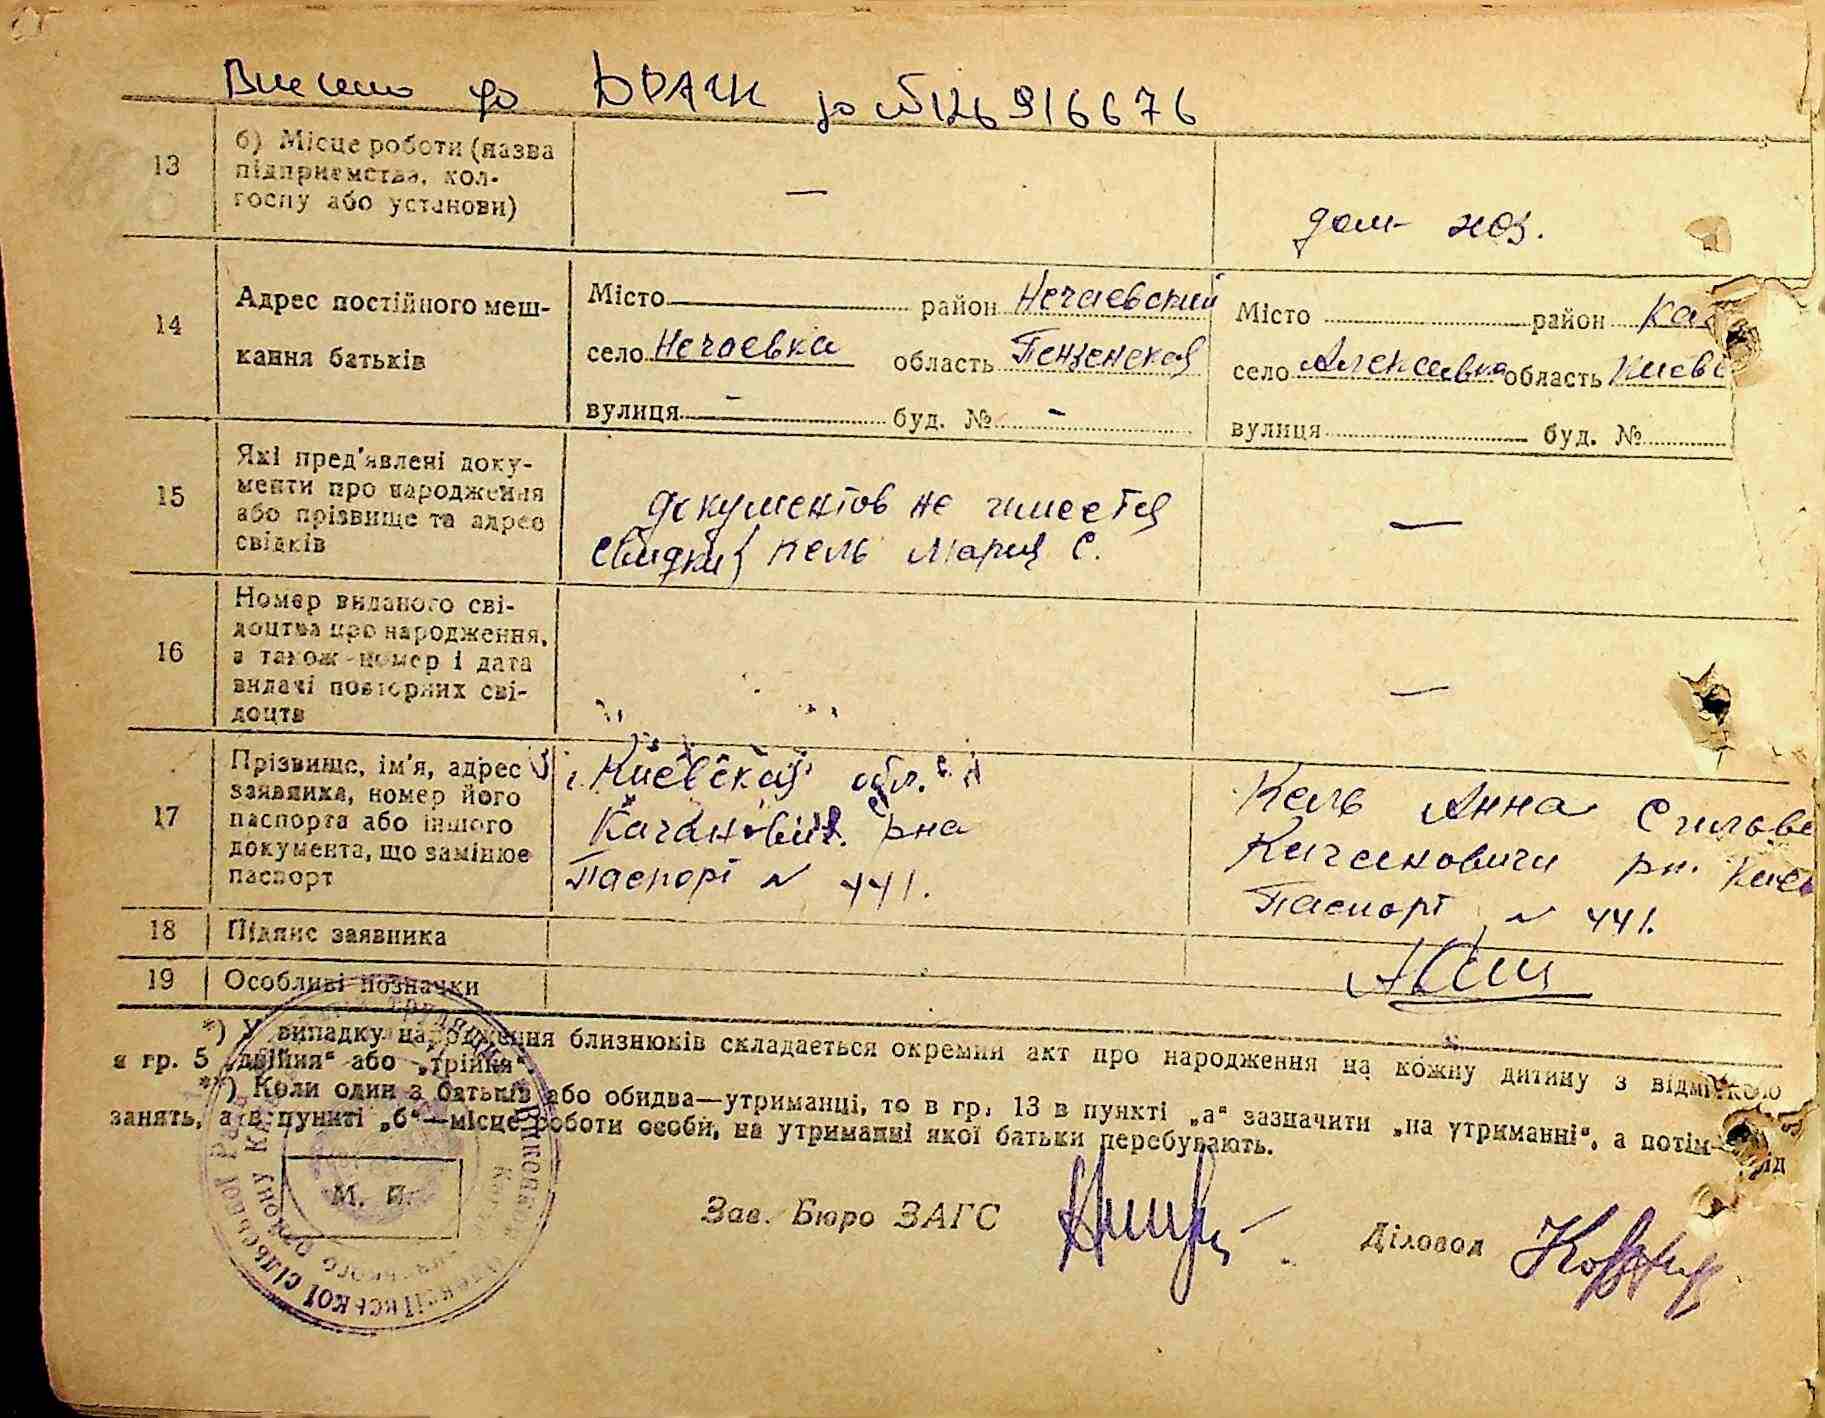 Внесено до ДРАЦС за №126916676
13
б) Місце роботи (назва
підприємства, кол-
госпу або установи)
—
дом- хоз.
14
Адрес постійного меш-
кання батьків
Місто район Нечаевский
село Нечаевка область Пензенская
вулиця - буд. № -
Місто район Ка
село Алексеевка область Киевс
вулиця буд. №
15
Які пред'явлені доку-
менти про народження
або прізвище та адрес
свідків
документов не имеется
свидки Кель Мария С.
—
16
Номер виданого сві-
доцтва про народження,
а також номер і дата
видачі повторних сві-
доцтв
—
17
Прізвище, ім'я, адрес
заявника, номер його
паспорта або іншого
документа, що замінює
паспорт
Киевская обл.
Качанович. рна
Паспорт № 441.
Кель Анна
Качановичи рн. Киев
Паспорт № 441.
18
Підпис заявника
19
Особливі позначки
*) У випадку народження близнюків складається окремий акт про народження на кожну дитину з відміткою
в гр. 5 „двійня" або „трійня".
**) Коли один з батьків або обидва—утриманці, то в гр. 13 в пункті „а" зазначити „на утриманні", а потім рід
занять, а в пункті „б"—місце роботи особи, на утриманні якої батьки перебувають.
М. П.
Зав. Бюро ЗАГС
Діловод